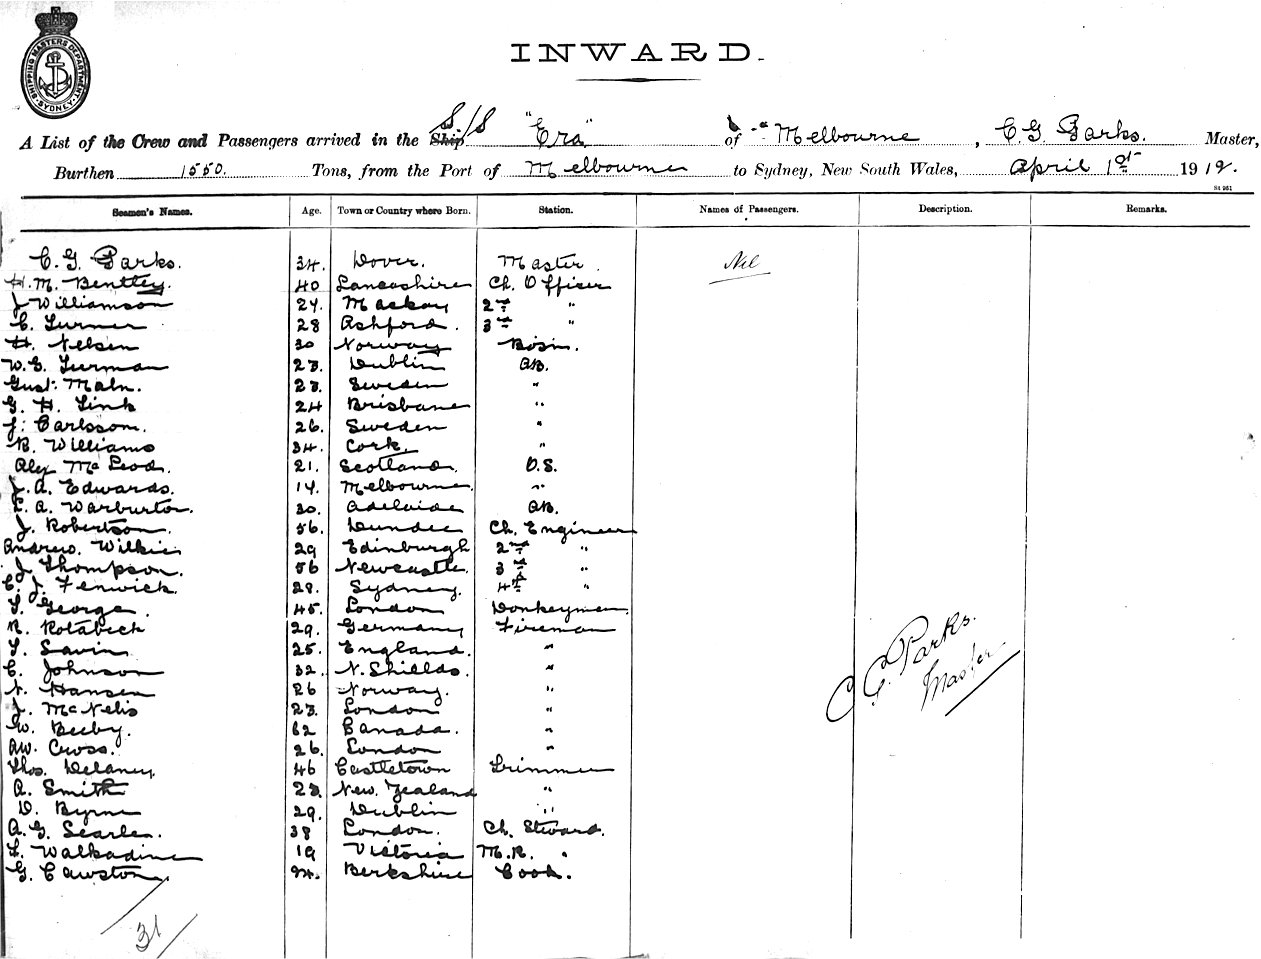 SHIPPING MASTERS DEPARTMENT SYDNEY
INWARD.
A List of the Crew and Passengers arrived in the Ship S/S "Era" of Melbourne, C G Parks. Master,
Burthen 1550. Tons, from the Port of Melbourne to Sydney, New South Wales, April 1st 1912.
Seamen's Names. Age. Town or Country where Born. Station. Names of Passengers. Description. Remarks.
C. G. Parks. 34. Dover. Master. Nil
H. M. Bentley. 40 Lancashire Ch. Officer
J Williamson 24. Mackay 2nd "
C. Turner 28 Ashford. 3rd "
H. Nelsen 30 Norway Bosn.
W. E. Turman 23. Dublin AB.
Gust. Maln. 23. Sweden "
G. H. Link 24 Brisbane "
J. Carlsson. 26. Sweden "
B. Williams 34. Cork. "
Alex McLeod. 21. Scotland. O.S.
J. A. Edwards. 17. Melbourne "
L. A. Warburton. 30. Adelaide AB.
J. Robertson. 56. Dundee Ch. Engineer
Andrew. Wilkie 29 Edinburgh 2nd "
J Thompson. 56 Newcastle. 3rd "
C. J. Fenwick. 28. Sydney. 4th "
T. George. 45. London Donkeyman.
R. Rotabeck 29. Germany Fireman
T. Savin 25. England. "
C. Johnson 32. N. Shields. "
N. Hansen 26 Norway. "
J. McNelis 23. London "
W. Beeby. 62 Canada. "
AW. Cross. 26. London "
Thos. Delaney. 46 Castletown Trimmer
A. Smith 23. New Zealand "
D. Byrne 29. Dublin "
A. G. Searle. 38 London. Ch. Steward.
F. Walkadine 19 Victoria M.R. "
G. Cawston. 24. Berkshire Cook.
C G. Parks.
Master
31